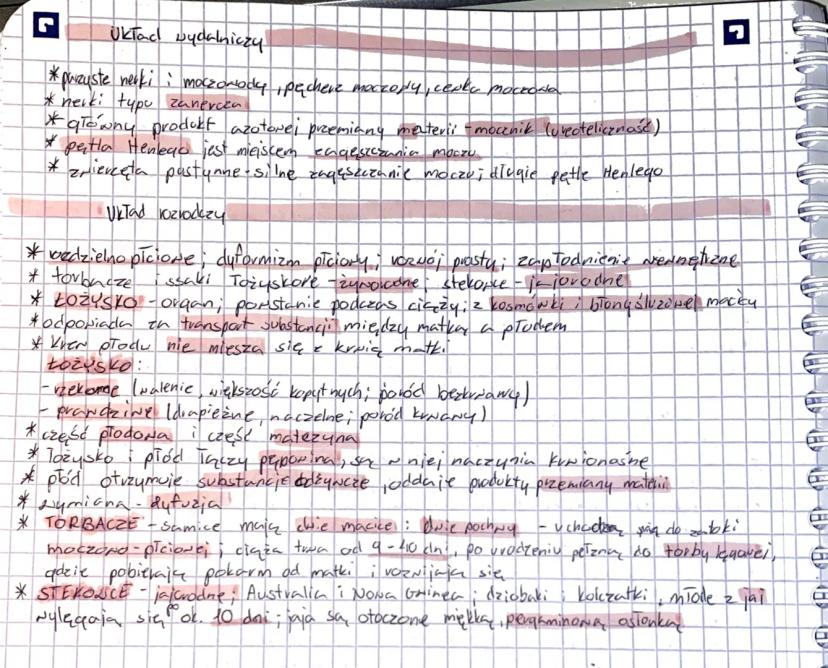 Układ wydalniczy
* parzyste nerki i moczowody, pęcherz moczowy, cewka moczowa
* nerki typu zanercza
* główny produkt azotowej przemiany materii - mocznik (ureoteliczność)
* pętla Henlego jest miejscem zagęszczania moczu
* zwierzęta pustynne - silne zagęszczanie moczu; długie pętle Henlego
Układ rozrodczy
* rozdzielnopłciowe; dyformizm płciowy; rozwój prosty; zapłodnienie wewnętrzne
* torbacze i ssaki łożyskowe - żyworodne; stekowce - jajorodne
* ŁOŻYSKO - organ; powstanie podczas ciąży; z kosmówki i błony śluzowej macicy
* odpowiada za transport substancji między matką a płodem
* krew płodu nie miesza się z krwią matki
ŁOŻYSKO:
- rzekome (walenie, większość kopytnych; poród bezkrwawy)
- prawdziwe (drapieżne, naczelne; poród krwawy)
* część płodowa i część matczyna
* łożysko i płód łączy pępowina, są w niej naczynia krwionośne
* płód otrzymuje substancje odżywcze, oddaje produkty przemiany materii
* wymiana - dyfuzja
* TORBACZE - samice mają dwie macice i dwie pochwy - uchodzą one do zatoki
moczowo-płciowej; ciąża trwa od 9-40 dni, po urodzeniu pełzną do torby lęgowej,
gdzie pobierają pokarm od matki i rozwijają się
* STEKOWCE - jajorodne; Australia i Nowa Gwinea; dziobaki i kolczatki, młode z jaj
wylęgają się po ok. 10 dni; jaja są otoczone miękką, pergaminową osłonką